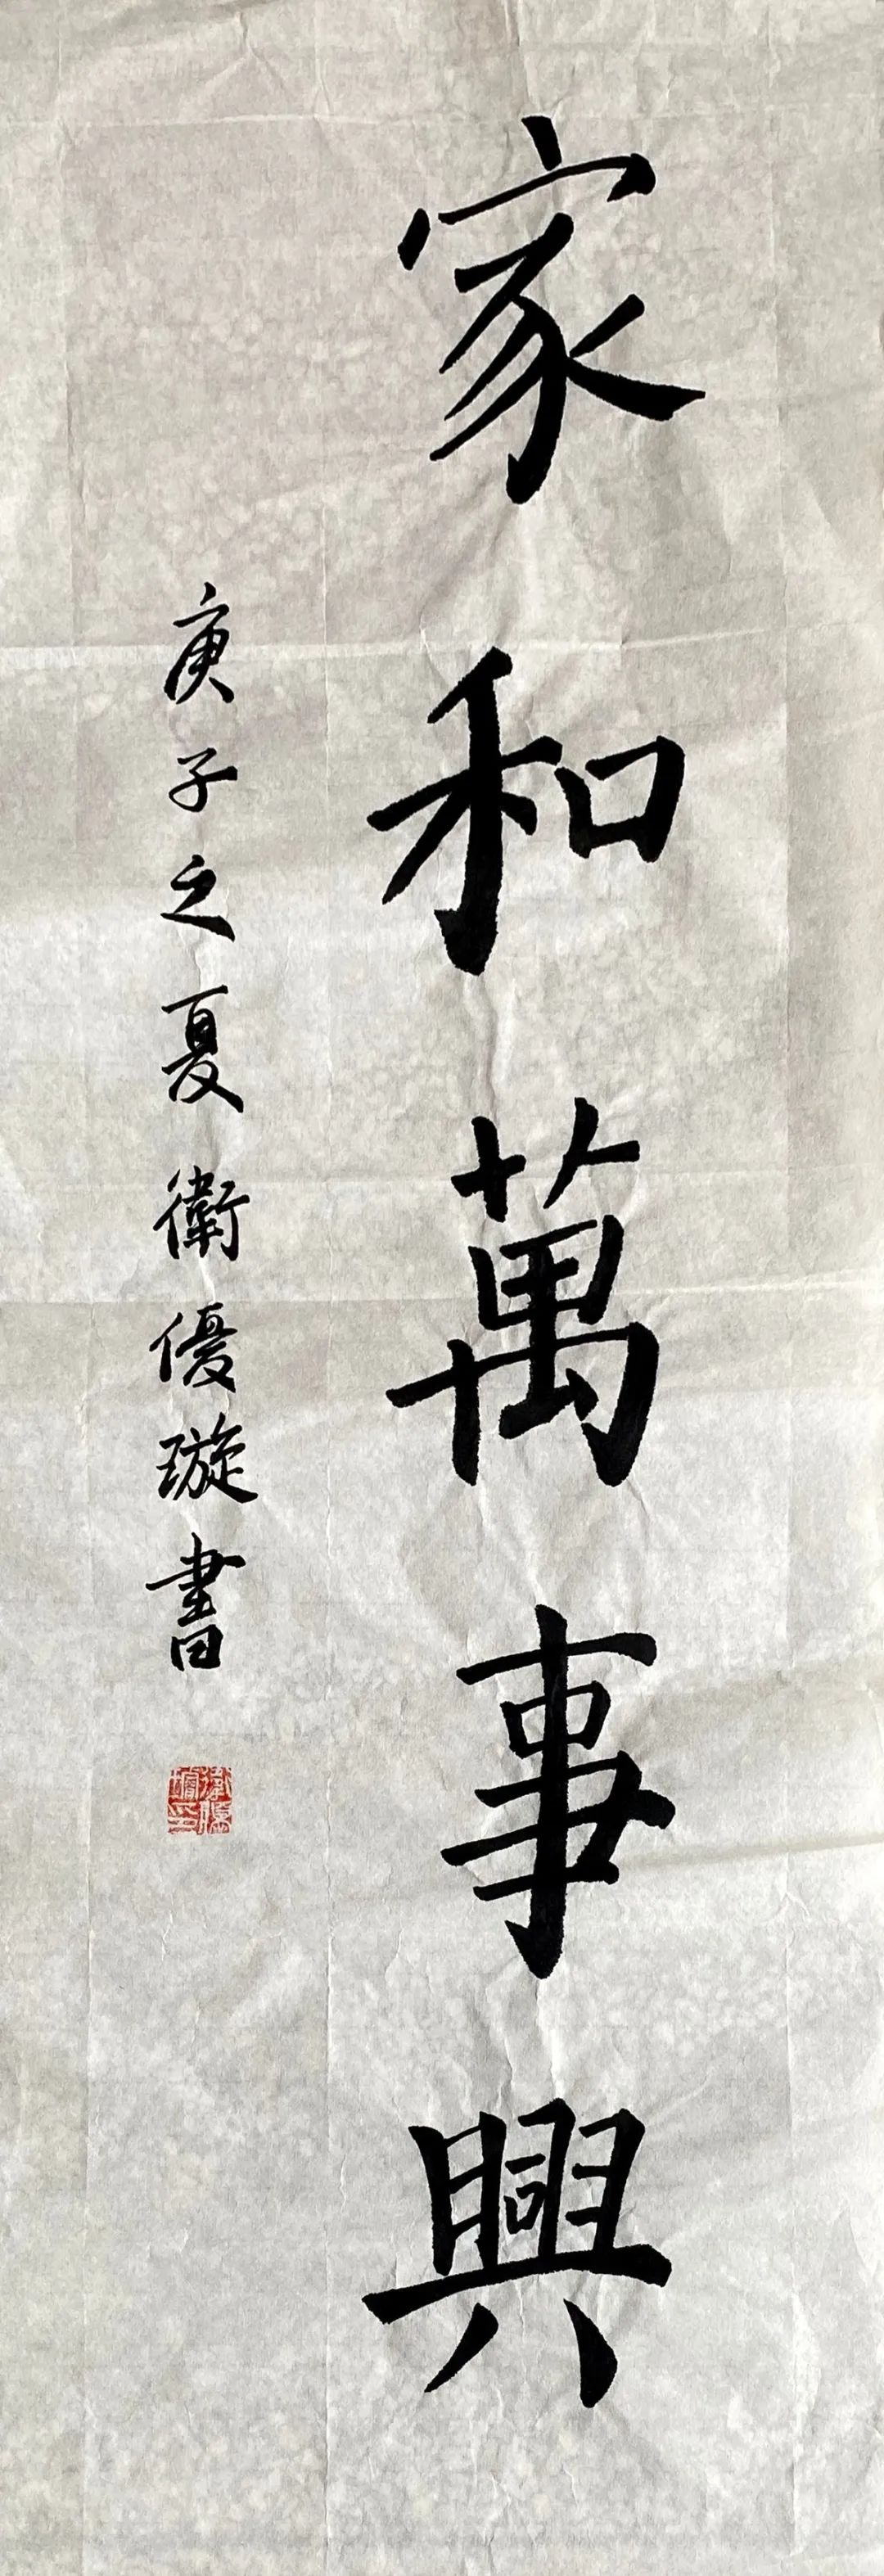 家和萬事興
庚子之夏衛優璇書